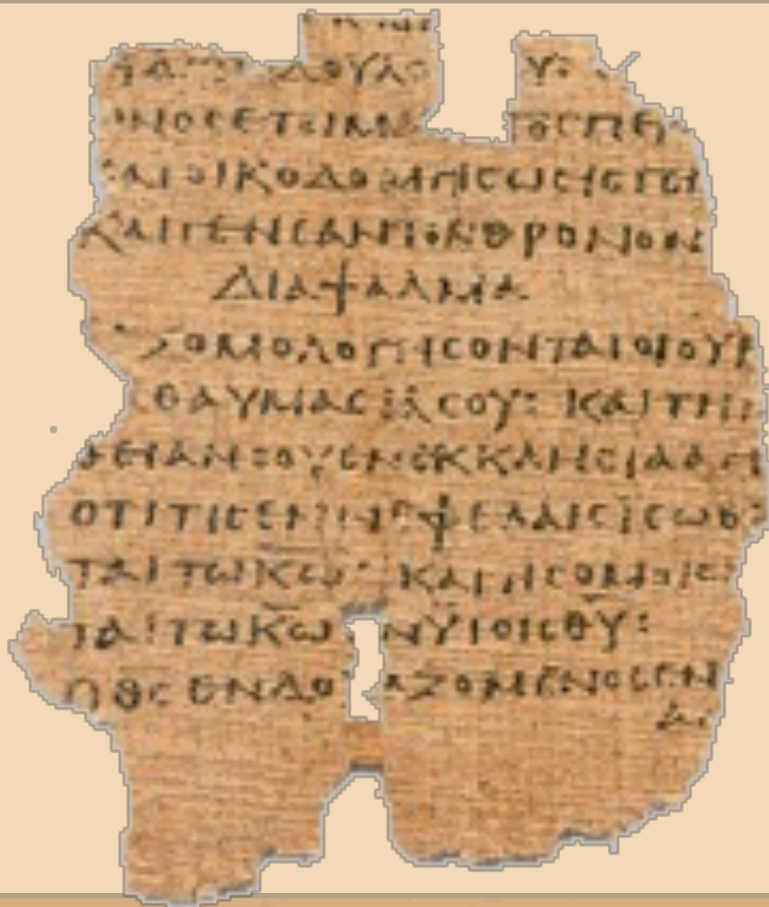 ΔΟΥΛΩ
ΝΟCΕΤΟΙΜΑ ΤΟCΠΕ
ΚΑΙΟΙΚΟΔΟΜΗCΩΕΙCΓΕΝ
ΚΑΙΓΕΝΕΑΝΤΟΝΘΡΟΝΟΝ
ΔΙΑΨΑΛΜΑ
ΞΟΜΟΛΟΓΗCΟΝΤΑΙΟΙΟΥΡ
ΘΑΥΜΑCΙΑCΟΥ: ΚΑΙΤΗΝ
ΘΕΙΑΝCΟΥΕΝΕΚΚΛΗCΙΑΑΓΙ
ΟΤΙΤΙCΕΝΝ ΦΕΛΑΙCΙCΩΘΗ
ΤΑΙΤΩΚ̅Ω̅: ΚΑΙΤΙCΟΜΟΙΩ
ΤΑΙΤΩΚ̅Ω̅ ΝΥΙΟΙCΘ̅Υ̅:
ΟΘ̅C̅ΕΝΔΟ ΑΖΟΜΕΝΟCΕΝ